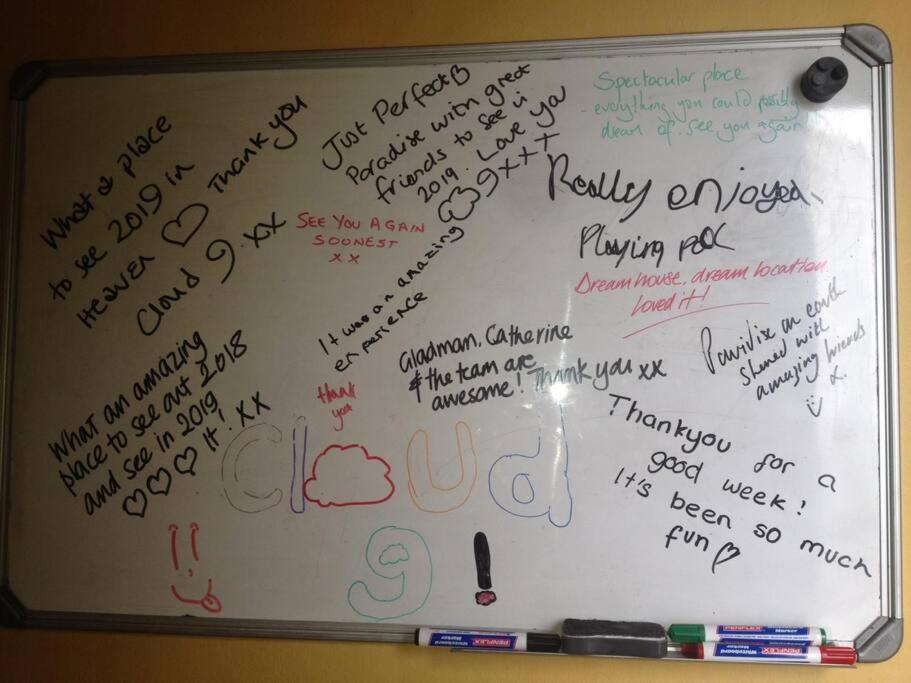 What a place
to see 2019 in
HEAVEN ♡ Thank you
Cloud 9.xx
Just Perfect
Paradise with great
friends to see in
2019. Love you
9 x x x
Spectacular place
- everything you could possibly
dream of. see you again!
Really enjoyed
Playing pool
SEE YOU AGAIN
SOONEST
x x
Dream house, dream location
loved it!
It was an amazing
experience
Gladman, Catherine
& the team are
awesome! Thank you xx
Paridise on earth
shared with
amazing friends
What an amazing
place to see out 2018
and see in 2019
♡♡♡ It! XX
thank
you
Thankyou for a
good week!
It's been so much
fun ♡
Cloud
9!
PENFLEX
Whiteboard
Marker
PENFLEX
Marker
PENFLEX
Whiteboard
Marker